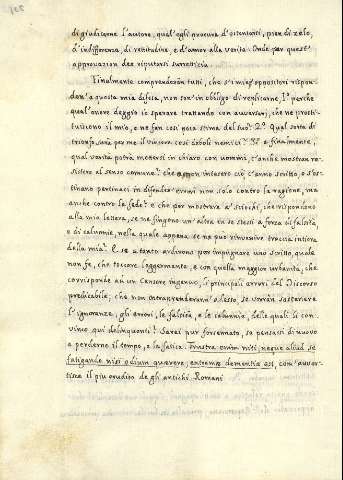 di giudicarne l'autore, qual'egli procura d'ostentarsi, pien di zelo,
d'indifferenza, di rettitudine, e d'amor alla verità. Onde per quest'
approvazion dee riputarsi surretizia.
Finalmente comprenderàn tutti, che s'i miei oppositori rispon-
don' a questa mia difesa, non son' in obbligo di replicarne. 1.° perchè
qual'onore deggio io sperare trattando con avversarj, che ne prosti-
tuiscono il mio, e ne fan così poca stima del suo? 2.° Qual sorta di
trionfo sarà per me il vincere così deboli nemici? 3.° e finalmente,
qual verità potrà mettersi in chiaro con uomini, c'anche mostran re-
sistere al senso comune? che appena intesero ciò c'anno scritto, o s'os-
tinano pertinaci in difender' errori non solo contro la ragione, ma
anche contro la fede? e che per mostrare a' sciochi, che rispondano
alla mia lettera, se ne fingono un'altra da se stessi a forza di falsità,
e di calunnie, nella quale appena se ne può rinvenire traccia intiera
della mia? E se a tanto ardirono per impugnare uno scritto, quale
non fe, che toccare leggermente, e con quella maggior urbanità, che
corrisponde ad un censore ingenuo, li principali errori del Discorso
predicabile, che non intraprenderann' adesso se vorràn sostenere
l'ignoranze, gli errori, le falsità, e le calunnie, delle quali li con-
vinco qui delinquenti? Sarei pur forsennato, se pensassi di nuovo
a perderne il tempo, e la fatica. Frustra enim niti, neque aliud se
fatigando nisi odium quaerere, extremae dementiae est, com'avver-
tisce il più erudito de gli antichi Romani